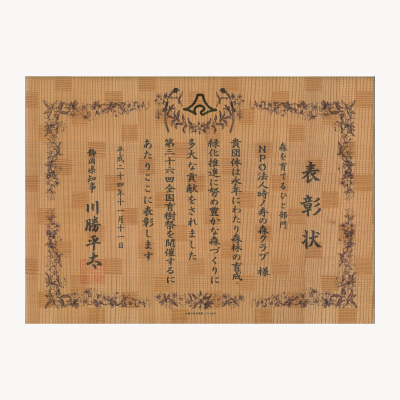 表彰状
森を育てるひと部門
NPO法人時ノ寿の森クラブ 様
貴団体は永年にわたり森林の育成
緑化推進に努め豊かな森づくりに
多大な貢献をされました
第三十六回全国育樹祭を開催するに
あたりここに表彰します
平成二十四年十一月十一日
静岡県知事 川勝平太